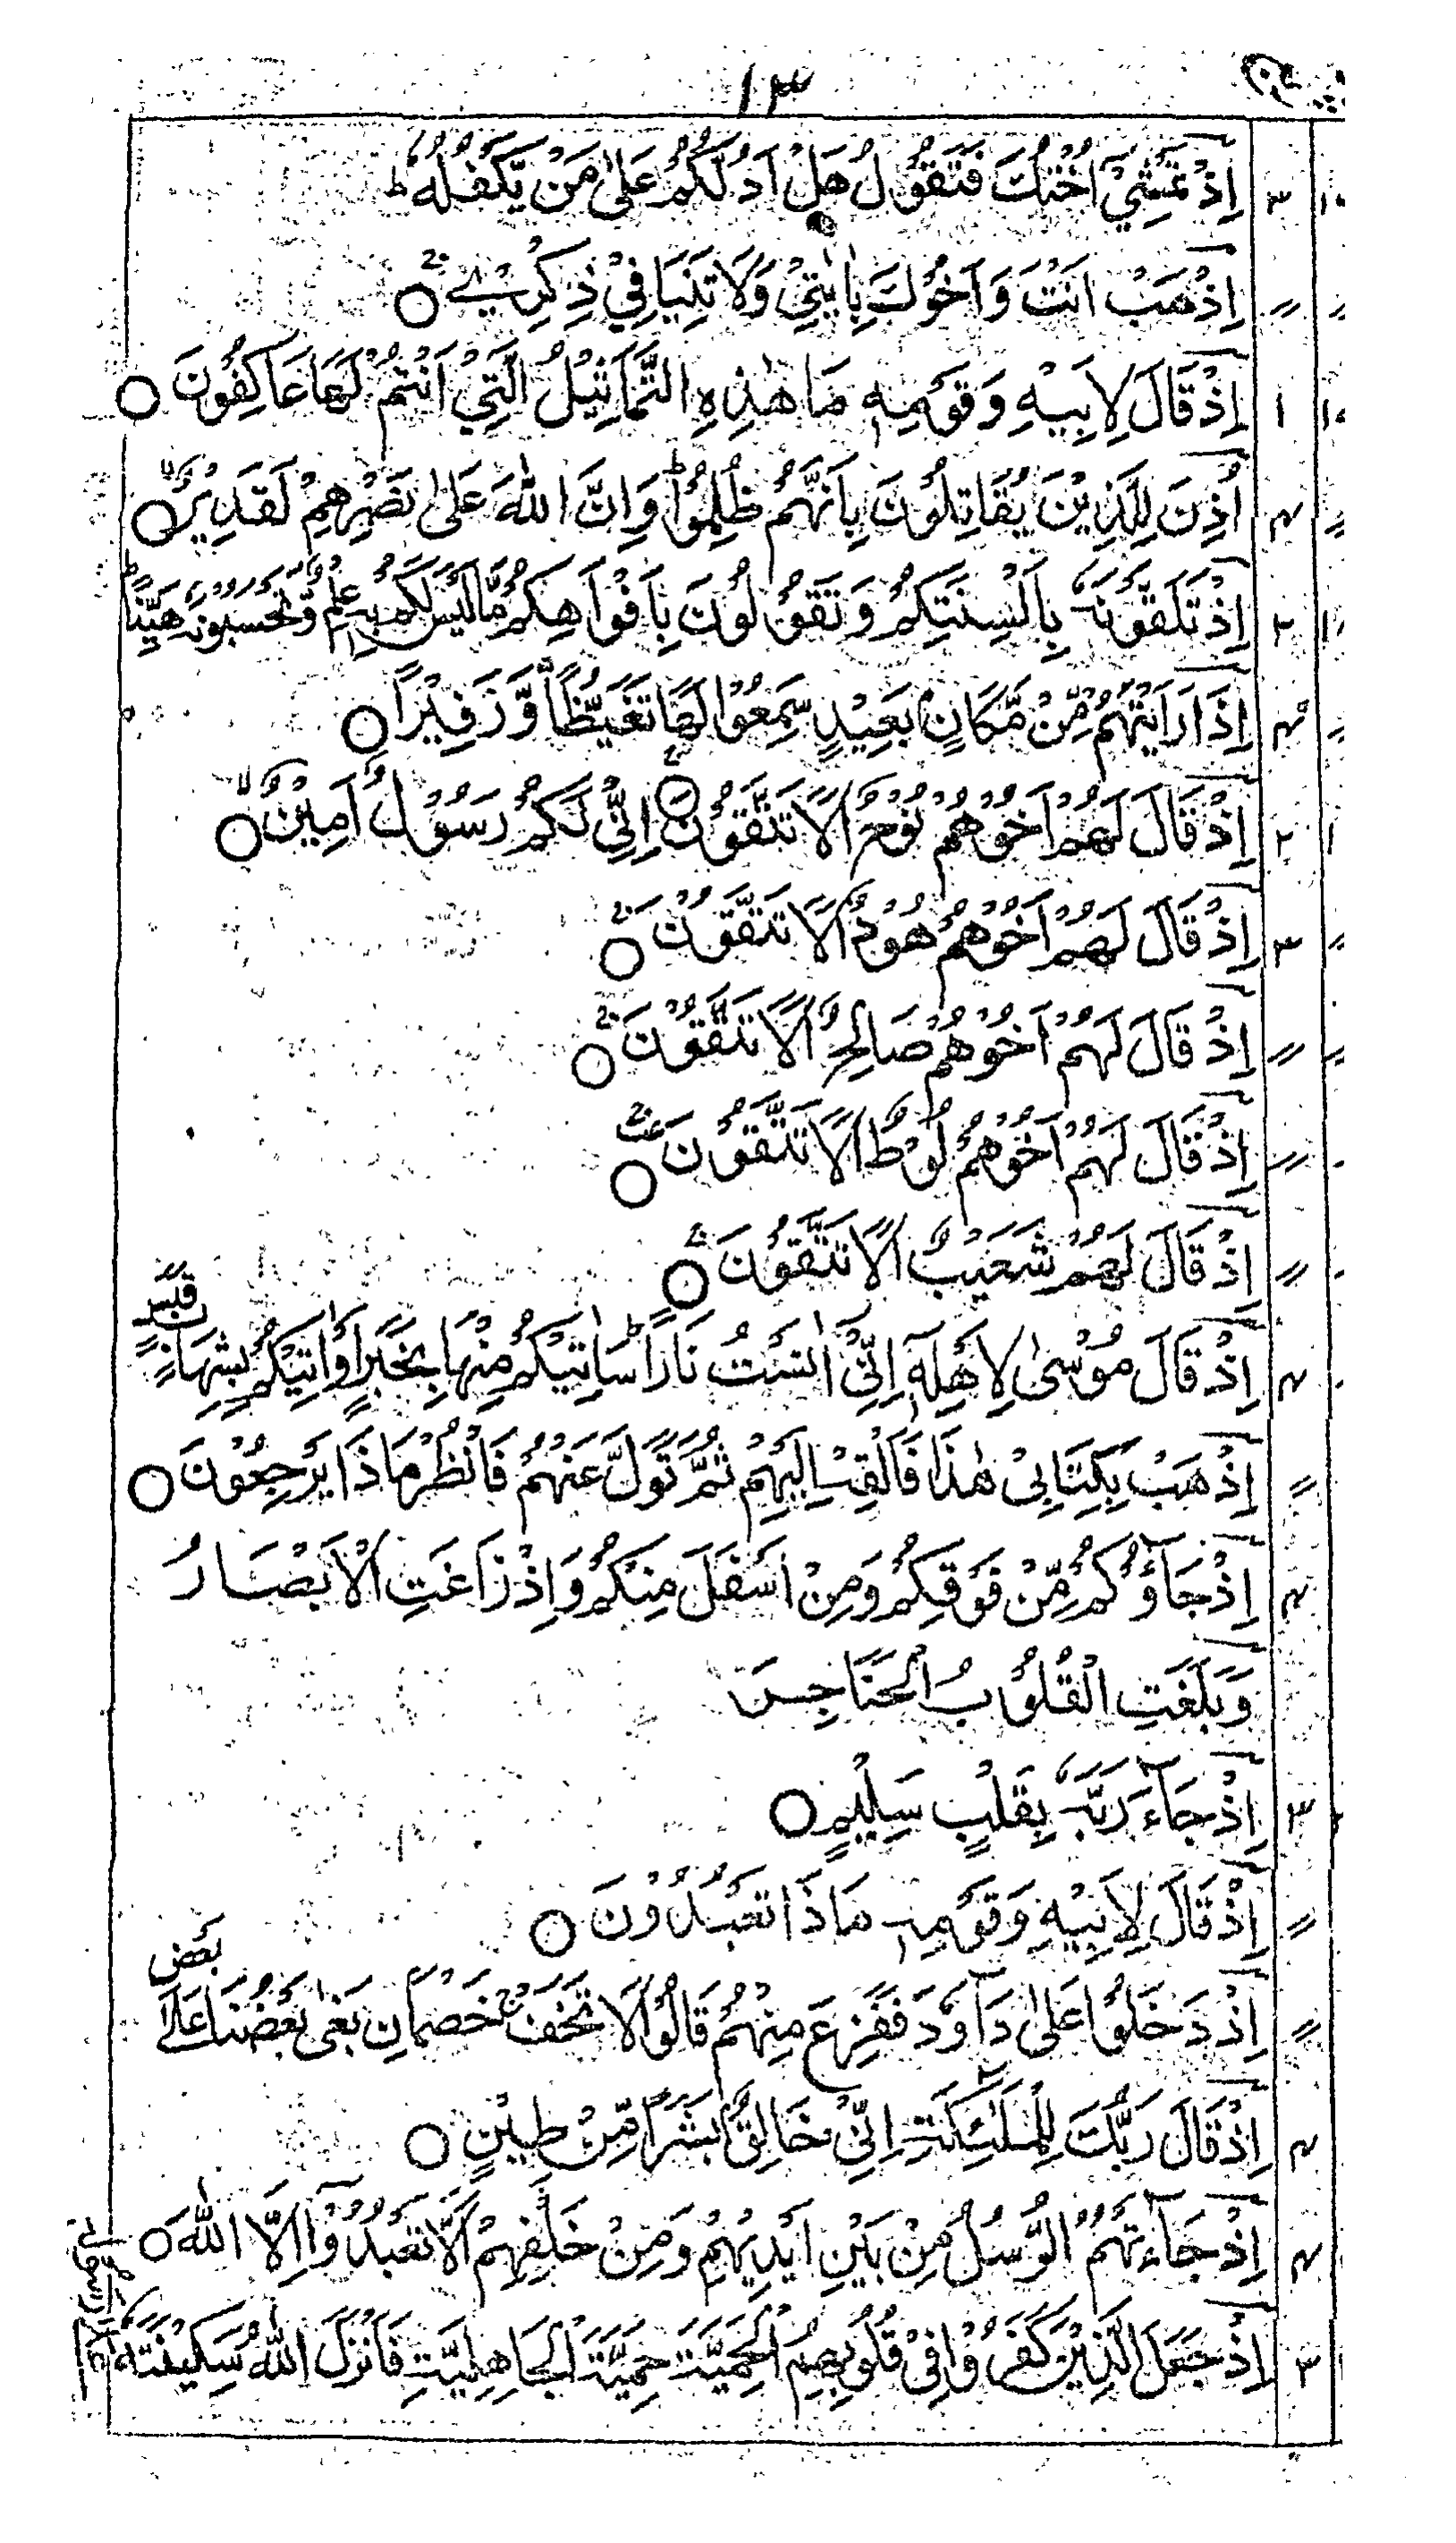 ١٣
إِذْ تَمْشِيْٓ اُخْتُكَ فَتَقُوْلُ هَلْ اَدُلُّكُمْ عَلٰى مَنْ يَّكْفُلُهٗ ط
اِذْهَبْ اَنْتَ وَاَخُوْكَ بِاٰيٰتِيْ وَلَا تَنِيَا فِيْ ذِكْرِيْ ○
اِذْ قَالَ لِاَبِيْهِ وَقَوْمِهٖ مَا هٰذِهِ التَّمَاثِيْلُ الَّتِيْٓ اَنْتُمْ لَهَا عَاكِفُوْنَ ○
اُذِنَ لِلَّذِيْنَ يُقَاتَلُوْنَ بِاَنَّهُمْ ظُلِمُوْا ط وَاِنَّ اللّٰهَ عَلٰى نَصْرِهِمْ لَقَدِيْرٌ ○
اِذْ تَلَقَّوْنَهٗ بِاَلْسِنَتِكُمْ وَتَقُوْلُوْنَ بِاَفْوَاهِكُمْ مَّا لَيْسَ لَكُمْ بِهٖ عِلْمٌ وَّتَحْسَبُوْنَهٗ هَيِّنًا ط
اِذَا رَاَتْهُمْ مِّنْ مَّكَانٍ بَعِيْدٍ سَمِعُوْا لَهَا تَغَيُّظًا وَّزَفِيْرًا ○
اِذْ قَالَ لَهُمْ اَخُوْهُمْ نُوْحٌ اَلَا تَتَّقُوْنَ ○ اِنِّيْ لَكُمْ رَسُوْلٌ اَمِيْنٌ ○
اِذْ قَالَ لَهُمْ اَخُوْهُمْ هُوْدٌ اَلَا تَتَّقُوْنَ ○
اِذْ قَالَ لَهُمْ اَخُوْهُمْ صَالِحٌ اَلَا تَتَّقُوْنَ ○
اِذْ قَالَ لَهُمْ اَخُوْهُمْ لُوْطٌ اَلَا تَتَّقُوْنَ ○
اِذْ قَالَ لَهُمْ شُعَيْبٌ اَلَا تَتَّقُوْنَ ○
اِذْ قَالَ مُوْسٰى لِاَهْلِهٖٓ اِنِّيْٓ اٰنَسْتُ نَارًا ط سَاٰتِيْكُمْ مِنْهَا بِخَبَرٍ اَوْ اٰتِيْكُمْ بِشِهَابٍ قَبَسٍ
اِذْهَبْ بِكِتَابِيْ هٰذَا فَاَلْقِهْ اِلَيْهِمْ ثُمَّ تَوَلَّ عَنْهُمْ فَانْظُرْ مَاذَا يَرْجِعُوْنَ ○
اِذْ جَآؤُكُمْ مِّنْ فَوْقِكُمْ وَمِنْ اَسْفَلَ مِنْكُمْ وَاِذْ زَاغَتِ الْاَبْصَارُ
وَبَلَغَتِ الْقُلُوْبُ الْحَنَاجِرَ
اِذْ جَآءَ رَبَّهٗ بِقَلْبٍ سَلِيْمٍ ○
اِذْ قَالَ لِاَبِيْهِ وَقَوْمِهٖ مَاذَا تَعْبُدُوْنَ ○
اِذْ دَخَلُوْا عَلٰى دَاوٗدَ فَفَزِعَ مِنْهُمْ قَالُوْا لَا تَخَفْ خَصْمَانِ بَغٰى بَعْضُنَا عَلٰى بَعْضٍ
اِذْ قَالَ رَبُّكَ لِلْمَلٰٓئِكَةِ اِنِّيْ خَالِقٌ بَشَرًا مِّنْ طِيْنٍ ○
اِذْ جَآءَتْهُمُ الرُّسُلُ مِنْ بَيْنِ اَيْدِيْهِمْ وَمِنْ خَلْفِهِمْ اَلَّا تَعْبُدُوْٓا اِلَّا اللّٰهَ ○
اِذْ جَعَلَ الَّذِيْنَ كَفَرُوْا فِيْ قُلُوْبِهِمُ الْحَمِيَّةَ حَمِيَّةَ الْجَاهِلِيَّةِ فَاَنْزَلَ اللّٰهُ سَكِيْنَتَهٗ